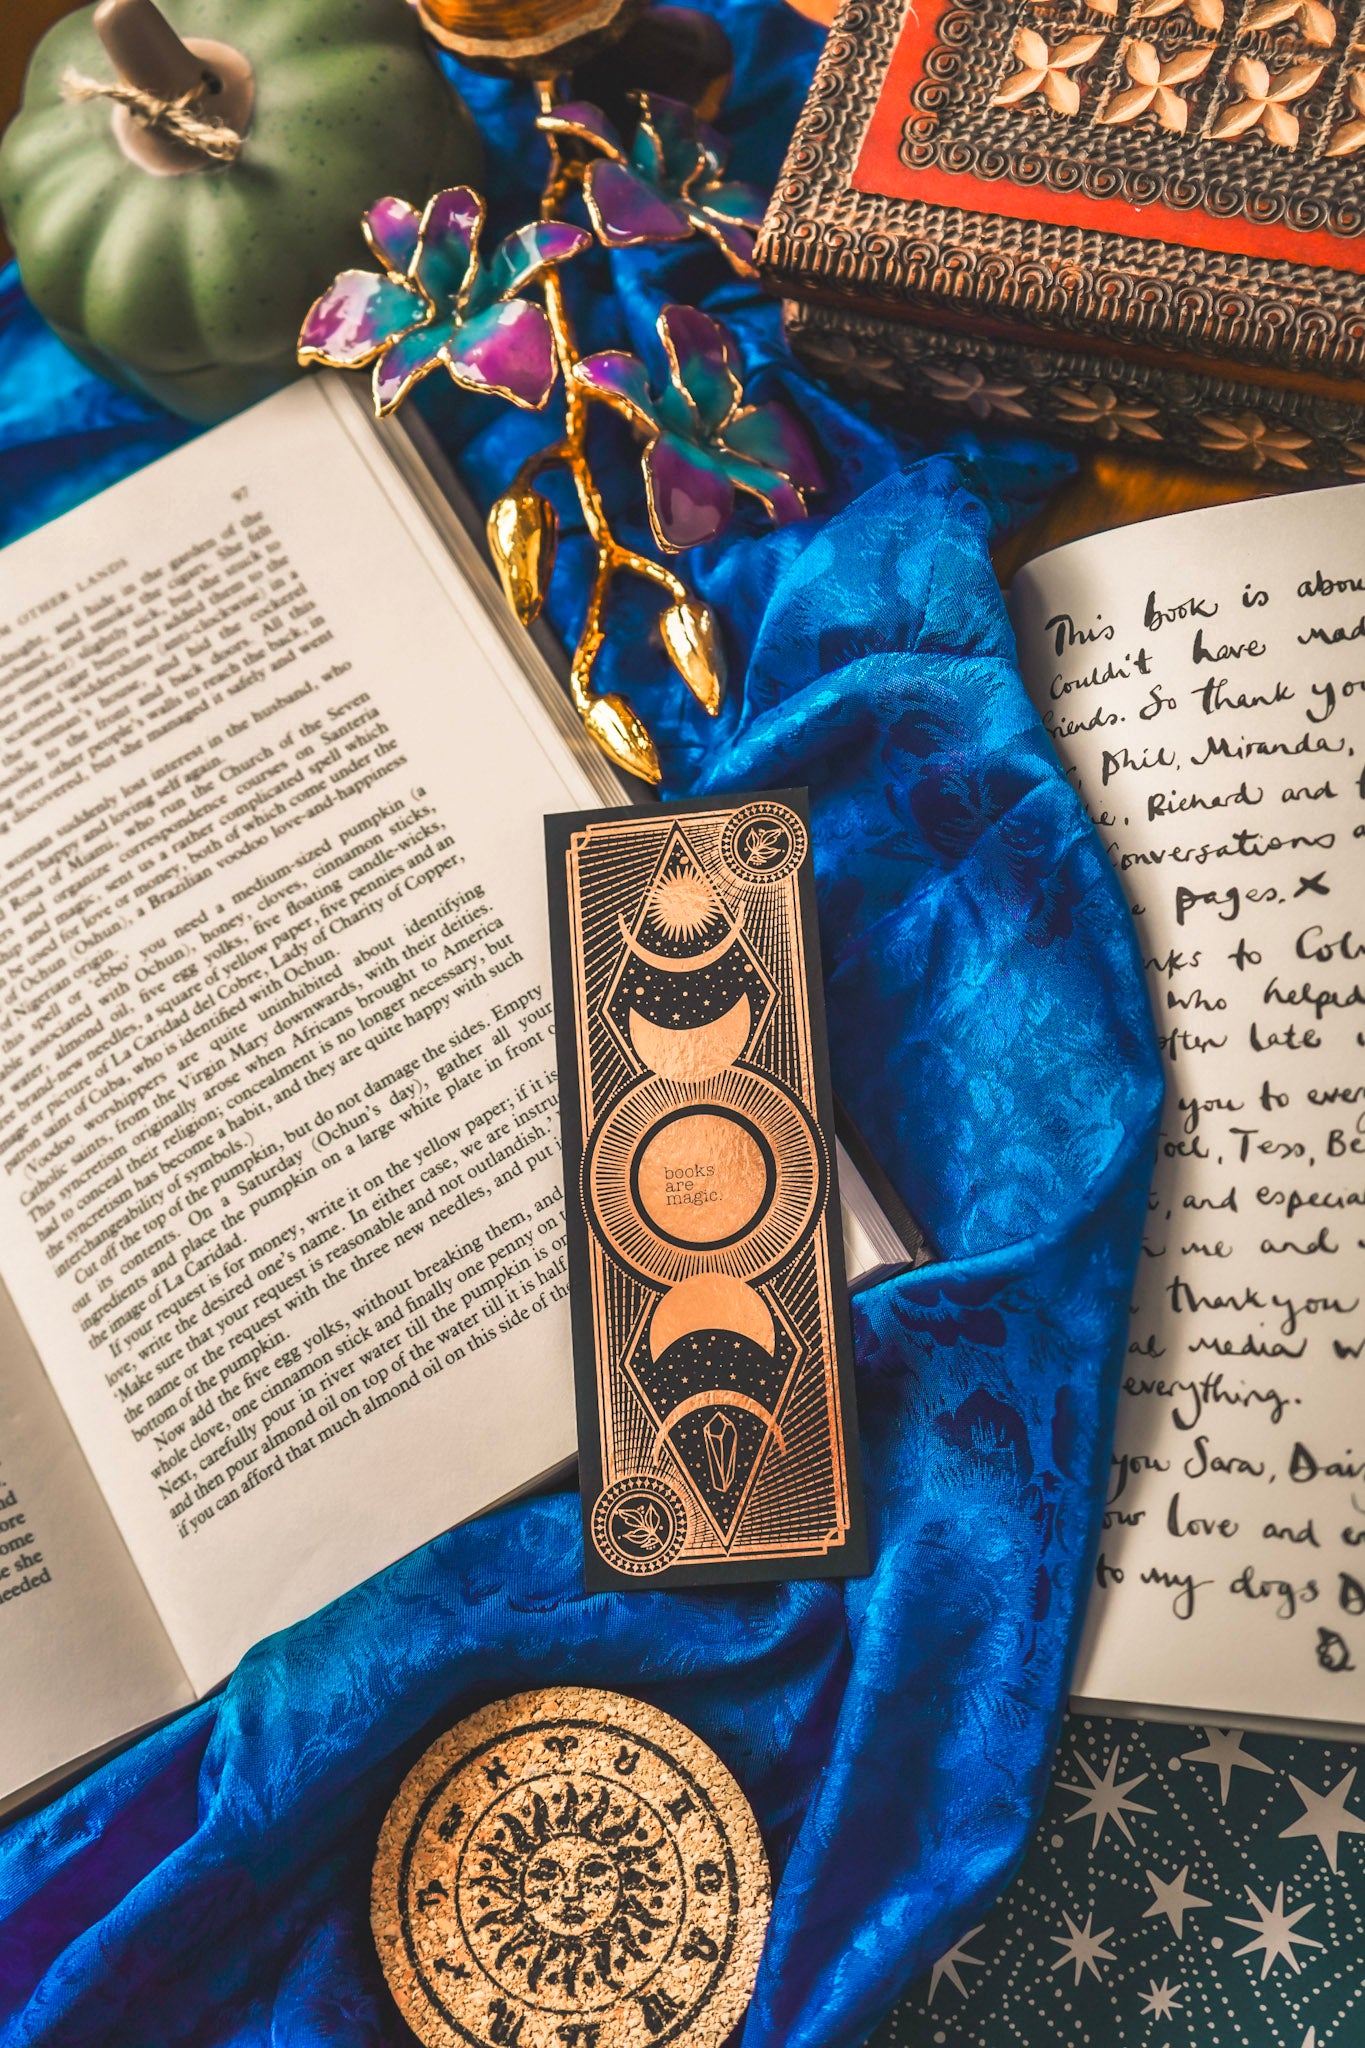 97
OTHER LANDS
and hide in the garden of the
and smoke the cigars. She felt
slightly sick, but the
own cigar butts and added them to the
widdershins (anti-clockwise) in a
the woman's house, and bid the cockerel
to the front and back doors. All this
over other people's walls to reach the back, in
discovered, but she managed it safely and went
suddenly lost interest in the husband, who
happy and loving self again.
of Miami, who run the Church of the Seven
and organize correspondence courses on Santeria
and magic, sent us a rather complicated spell which
be used for love or money, both of which come under the
of Ochun (Oshun), a Brazilian voodoo love-and-happiness
of Nigerian origin.
this spell or 'ebbo' you need a medium-sized pumpkin (a
associated with Ochun), honey, cloves, cinnamon sticks,
water, almond oil, five egg yolks, five floating candle-wicks,
brand-new needles, a square of yellow paper, five pennies and an
image or picture of La Caridad del Cobre, Lady of Charity of Copper,
patron saint of Cuba, who is identified with Ochun.
(Voodoo worshippers are quite uninhibited about identifying
Catholic saints, from the Virgin Mary downwards, with their deities.
This syncretism originally arose when Africans brought to America
had to conceal their religion; concealment is no longer necessary, but
the syncretism has become a habit, and they are quite happy with such
interchangeability of symbols.)
Cut off the top of the pumpkin, but do not damage the sides. Empty
out its contents. On a Saturday (Ochun's day), gather all your
ingredients and place the pumpkin on a large white plate in front
the image of La Caridad.
If your request is for money, write it on the yellow paper; if it is
love, write the desired one's name. In either case, we are instru
'Make sure that your request is reasonable and not outlandish,
the name or the request with the three new needles, and put i
bottom of the pumpkin.
Now add the five egg yolks, without breaking them, and
whole clove, one cinnamon stick and finally one penny on
Next, carefully pour in river water till the pumpkin is
and then pour almond oil on top of the water till it is half
if you can afford that much almond oil on this side of the
and
ore
ome
she
needed
books
are
magic.
This book is abou
couldn't have mad
friends. So thank you
Phil, Miranda,
Richard and
Conversations
pages. X
to
who helped
often late
you to every
Joel, Tess, Be
and especial
me and
thank you
media w
everything.
you Sara, Dai
love and
to my dogs